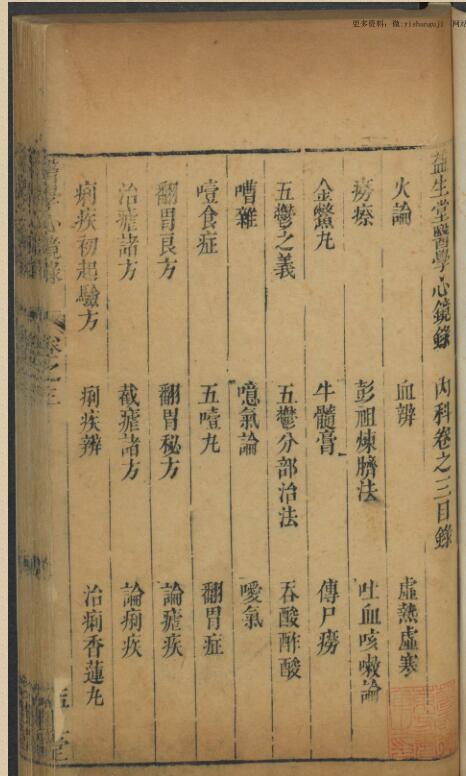 更多資料：微:yishanguji
益生堂醫學心鏡錄 內科卷之三目錄
火論 血辨 虛熱虛寒
癆瘵 彭祖煉臍法 吐血咳嗽論
金鱉丸 牛髓膏 傳尸癆
五鬱之義 五鬱分部治法 吞酸酢酸
嘈雜 噫氣論 噯氣
噎食症 五噎丸 翻胃症
翻胃良方 翻胃秘方 論瘧疾
治瘧諸方 截瘧諸方 論痢疾
痢疾初起驗方 痢疾辨 治痢香蓮丸
醫學心鏡錄 卷之三